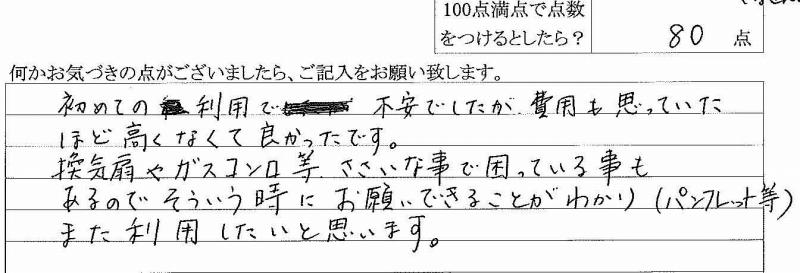 100点満点で点数
をつけるとしたら？
80 点
何かお気づきの点がございましたら、ご記入をお願い致します。
初めての 利用で 不安でしたが 費用も思っていた
ほど高くなくて良かったです。
換気扇やガスコンロ等、ささいな事で困っている事も
あるのでそういう時にお願いできることがわかり(パンフレット等)
また利用したいと思います。